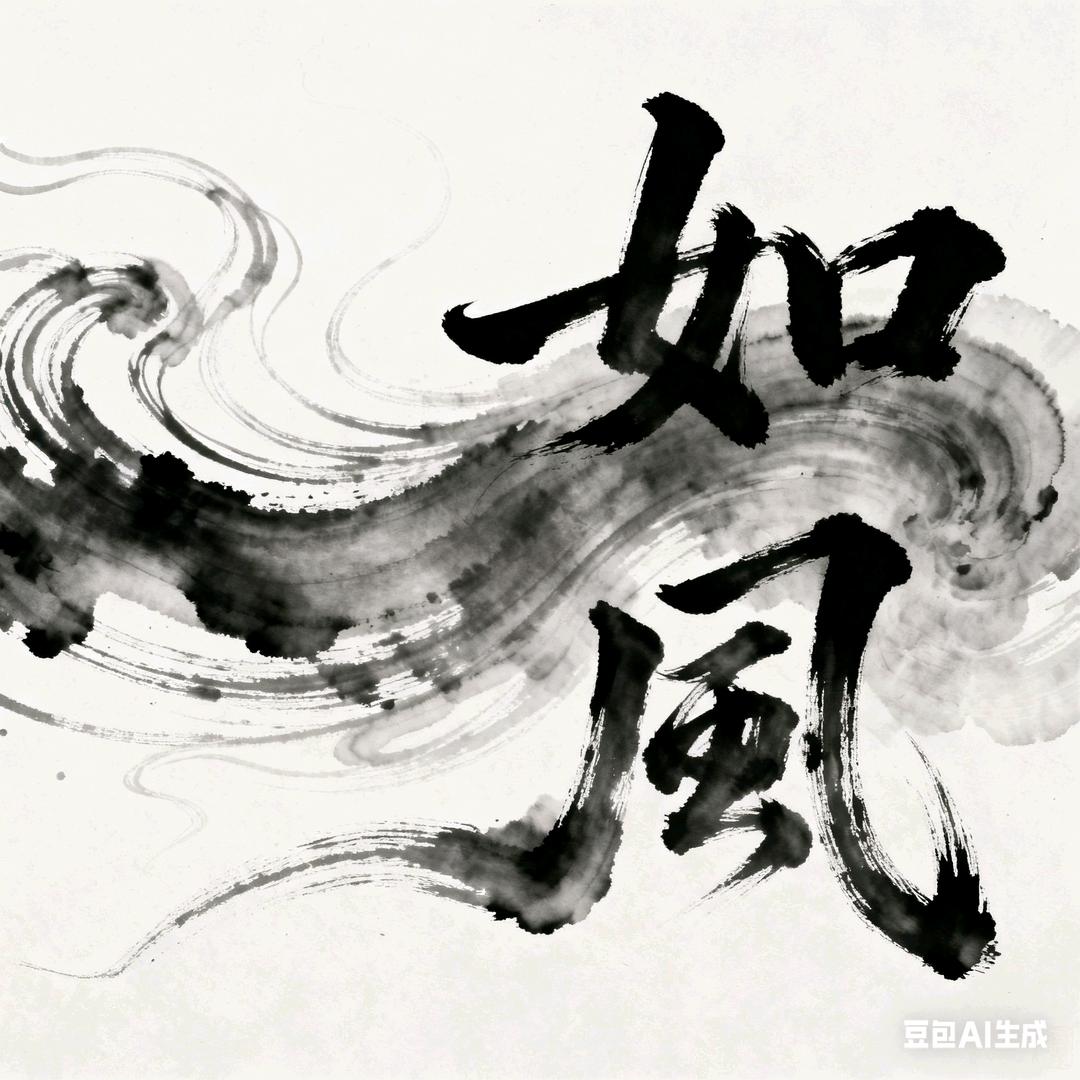 如
風
豆包AI生成